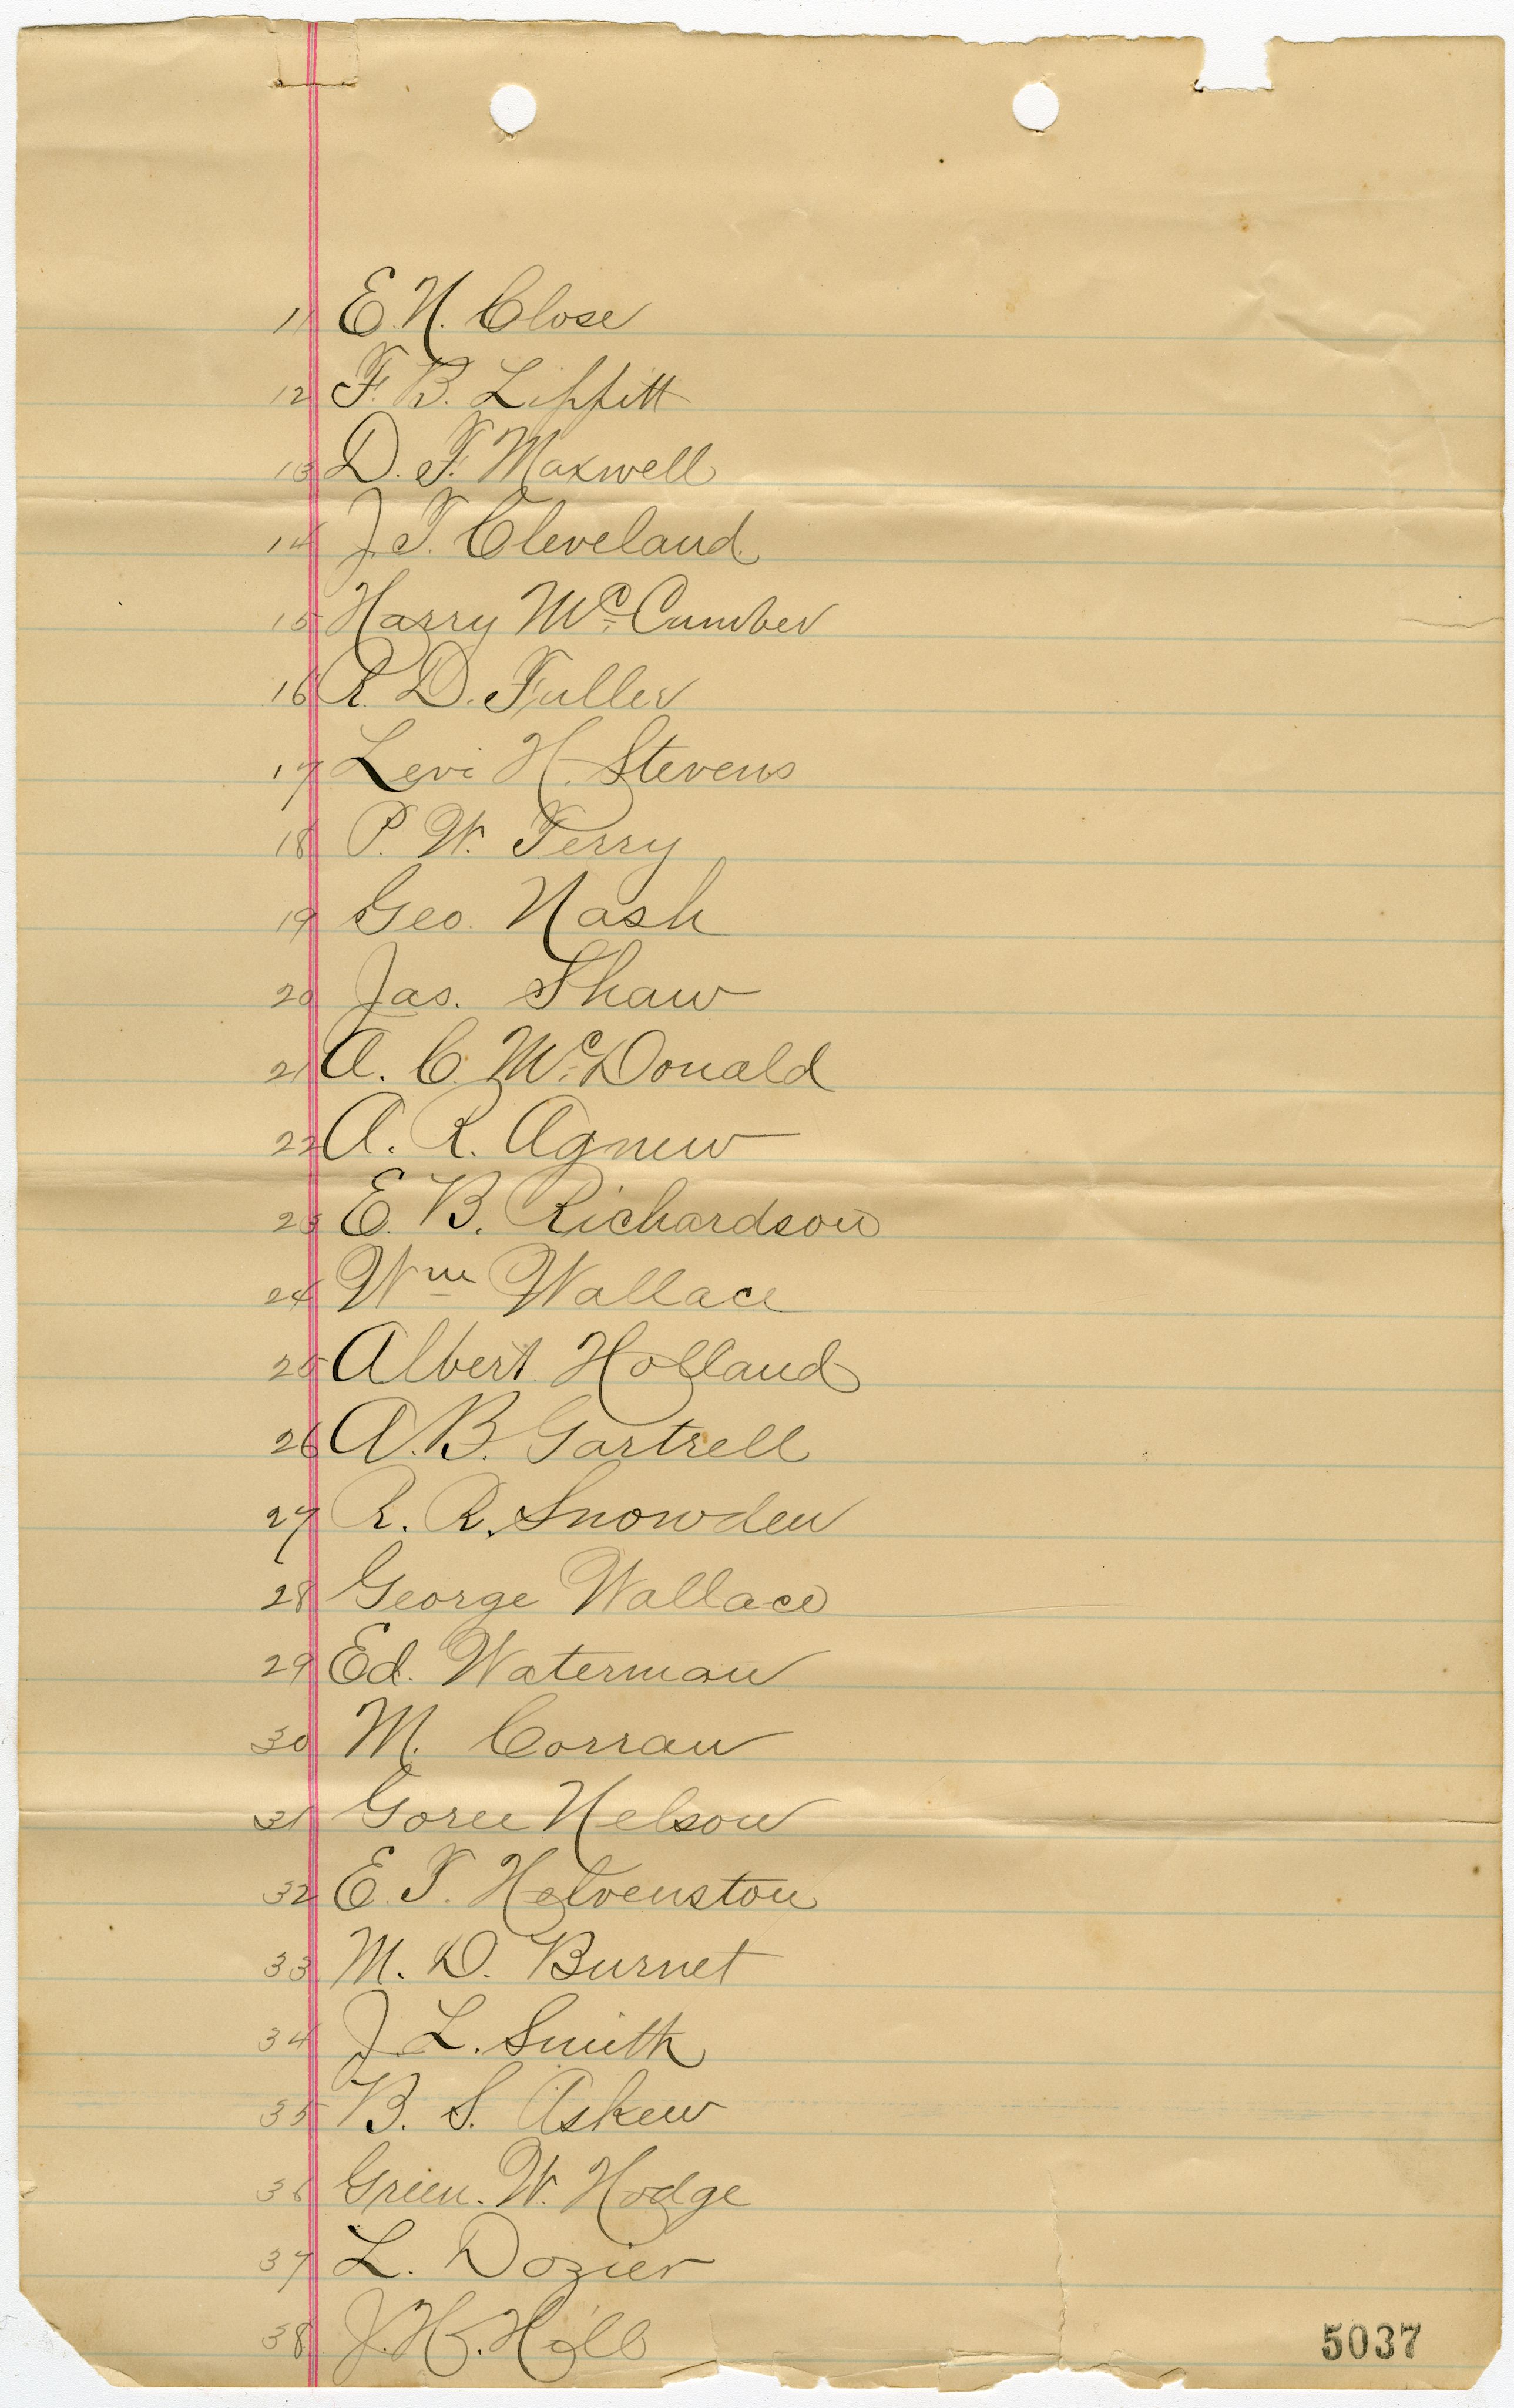 11 E. N. Close
12 F. B. Lippitt
13 D. F. Maxwell
14 J. T. Cleveland
15 Harry Mc Cumber
16 R. D. Fuller
17 Levi H. Stevens
18 P. W. Terry
19 Geo. Nash
20 Jas. Shaw
21 A. C. McDonald
22 A. R. Agnew
23 E. B. Richardson
24 Wm Wallace
25 Albert Holland
26 A. B. Gartrell
27 R. R. Snowden
28 George Wallace
29 Ed. Waterman
30 M. Corran
31 Goree Nelson
32 E. T. Helvenston
33 M. D. Burnet
34 J L. Smith
35 B. S. Askew
36 Green. W. Hodge
37 L. Dozier
38 J. H. Hill
5037